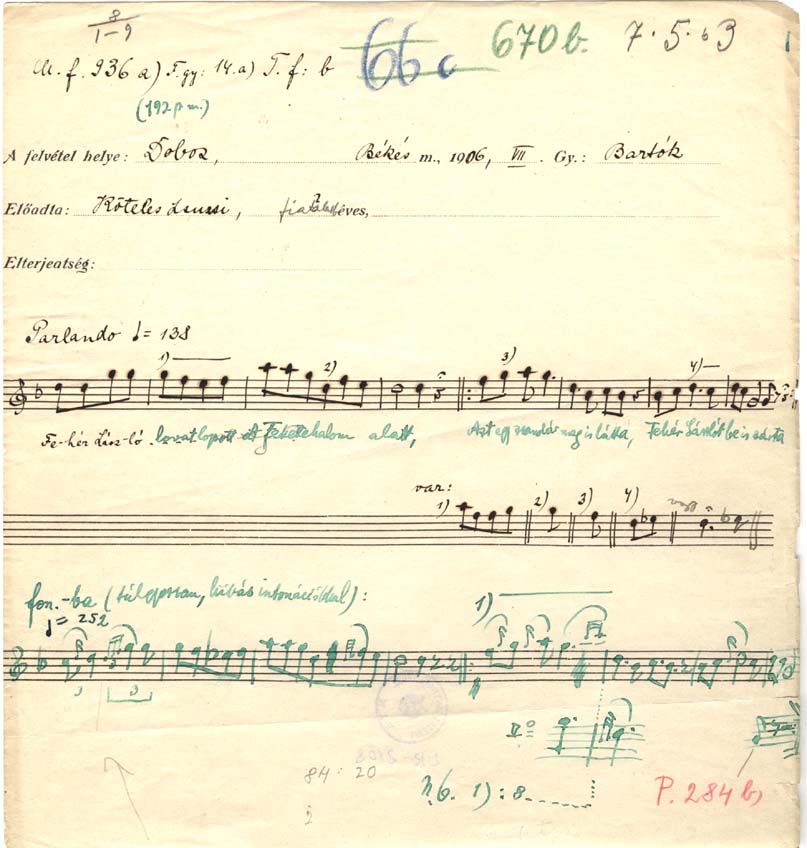 8
1-9
M. f. 936 a) F. gy: 14. a) T. f: b 66 c 670 b. 7.5.63
(192 p m.)
A felvétel helye: Doboz, Békés m., 1906, VII. Gy.: Bartók
Előadta: Köteles Zsuzsi, fiatal éves,
Elterjeatség:
Parlando ♩= 138
1) 2) 3) 4)
Fe-hér Lász-ló lovat lopott A Feketehalom alatt, Azt egy zsandár meg is látta, Fehér Lászlót be is zárta
var:
1) 2) 3) 4)
fon.-ba (túl gyorsan, hibás intonációkkal):
♩= 252
1)
3 3
II⁰
84 : 20
2
n. b. 1) : 8
P. 284 b)